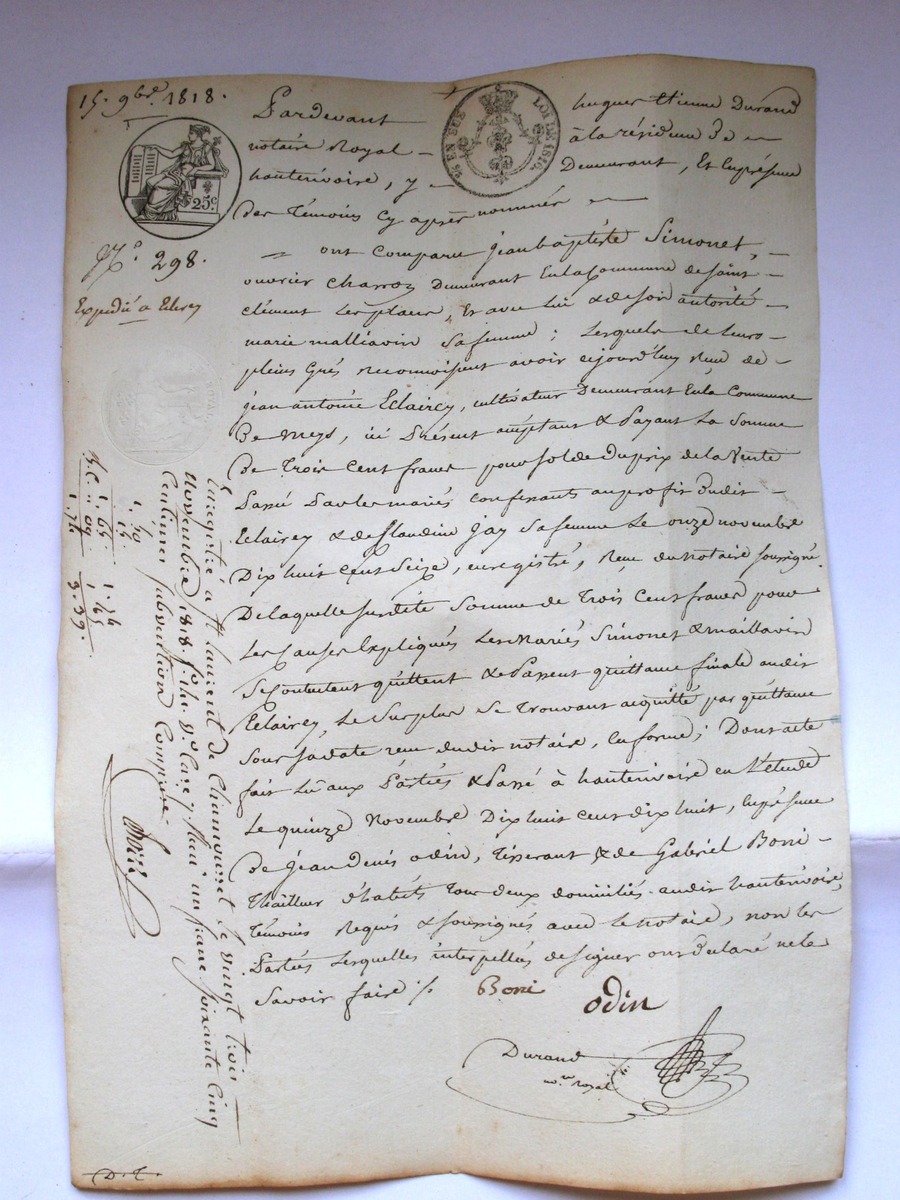 15. 9bre. 1818.
25c.
EN SUS LOI DE 1816.
Pardevant hugues Etienne Durand
notaire Royal à la résidence de
hauterivoire, y Demeurant, Et En présence
Des Témoins Cy après nommés
No. 298.
Expédié a Eclerey
ont Comparu jean baptiste Simonet,
ouvrier charron Demeurant En la Commune de saint
clément les places, Et avec lui & de son autorité
marie malliavin Sa femme; Lesquels de leurs
pleins Grés Reconnoissent avoir cejourd'huy Reçu de
jean antoine Eclairey, cultivateur Demeurant En la Commune
De meys, ici Présent acceptant & Payant La Somme
De Trois Cent francs pour solde Du prix de la Vente
Passé Par les mariés Confessants au profit Dudit
Eclairey & de Claudine jay Sa femme Le onze novembre
Dix huit Cent Seize, enregistré, Reçu du notaire soussigné.
De laquelle surdite Somme de Trois Cent francs pour
Les Causes Expliqués Les Mariés Simonet & maillavin
Se Contentent quittent & Passent quittance finale audit
Eclairey, Le Surplus Se Trouvant acquitté par quittance
Sous sa date reçu dudit notaire, En forme; Dont acte
fait Lû aux Parties & Passé à hauterivoire en L'etude
Le quinze Novembre Dix huit Cent dix huit, En présence
De Jean Denis odin, Tisserant & de Gabriel Boni
Thailleur d'habits Tous deux domiciliés audit hauterivoire,
Témoins Requis & soussignés avec le notaire, non les
Parties Lesquelles interpellés de signer ont Déclaré ne le
Savoir faire /.
Boni
odin
Durand
nre royal
Enregistré à St laurent de Chamousset le vingt trois
Novembre 1818. Reçu un franc soixante cinq
Centimes subvention Comprise
1. 50
15
1. 65
3. 39.
D. T.